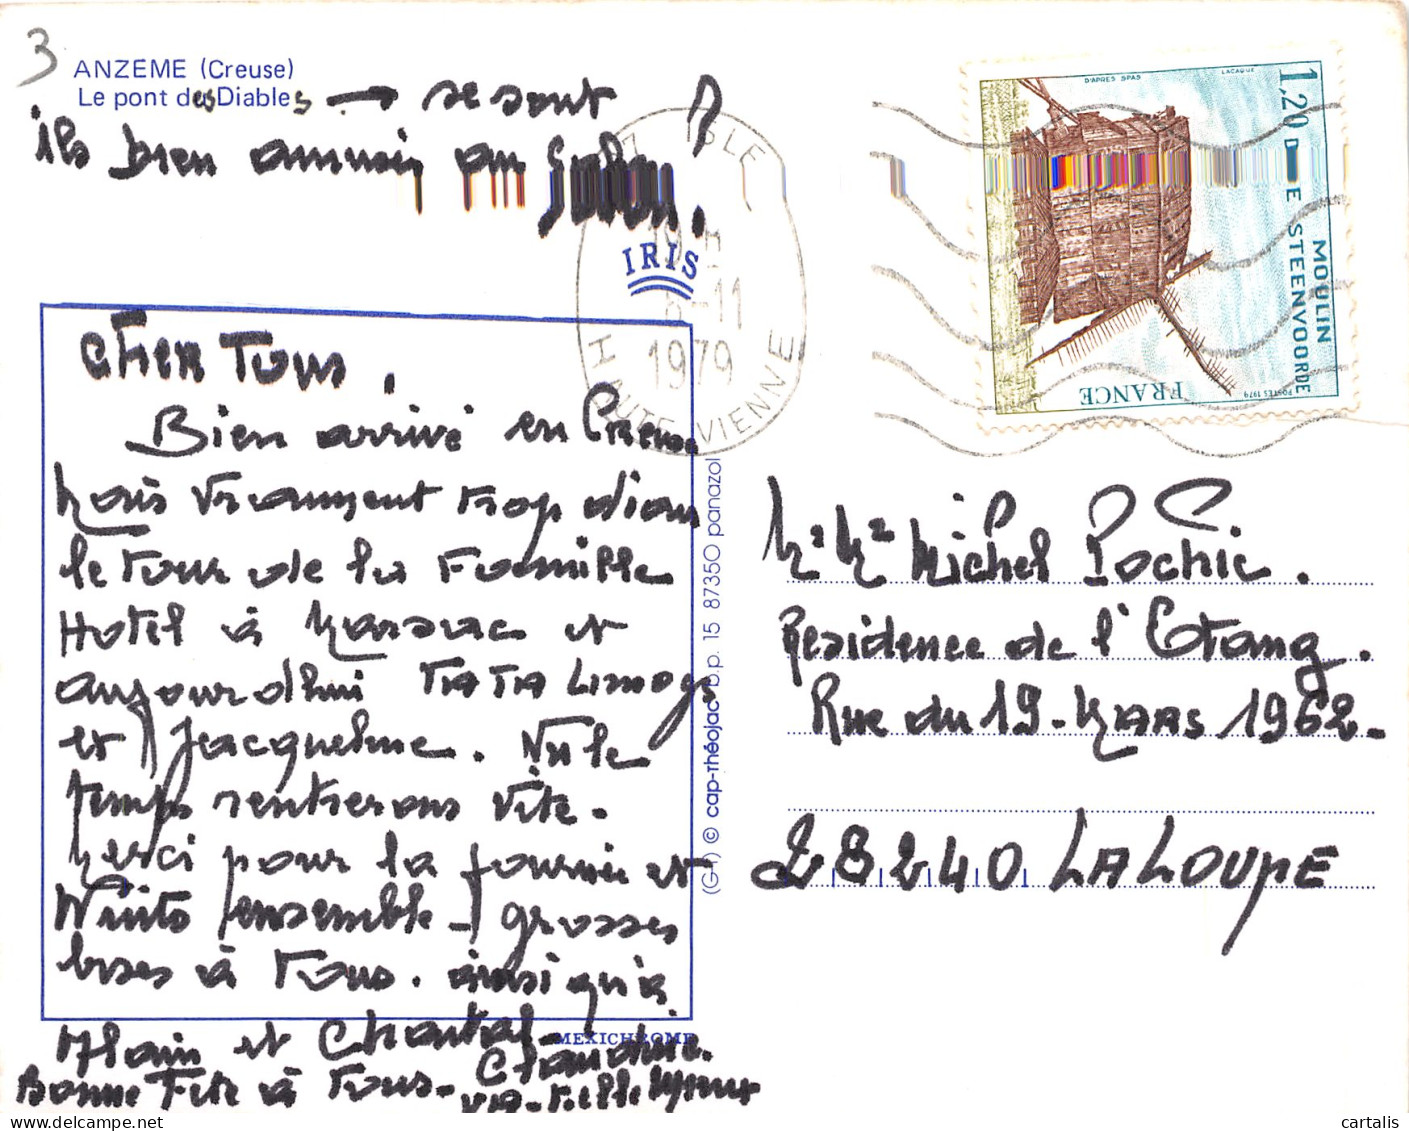 3
ANZEME (Creuse)
Le pont des Diables → se sont
ils bien amusés au
?
ISLE
6-11
1979
HAUTE-VIENNE
IRIS
D'APRES SPAS
LACAQUE
1,20
MOULIN
DE STEENVOORDE
POSTES 1979
FRANCE
Cher Tous,
Bien arrivé en Creuse
Mais vraiment trop dans
le Tour de la Famille
Hotel à et
aujourd'hui TATA Limoges
et Jacqueline. Vu le
temps rentrerons vite.
Merci pour la journée et
Nuits ensemble grosses
bises à Tous. ainsi qu'à
Alain et Chantal
Claudine.
Bonne Fête à Tous-
MEXICHROME
(G-1) © cap-théojac b.p. 15 87350 panazol
Mr Me Michel Pochic.
Résidence de l'Etang.
Rue du 19-MARS 1962-
28240 LA LOUPE
cartalis